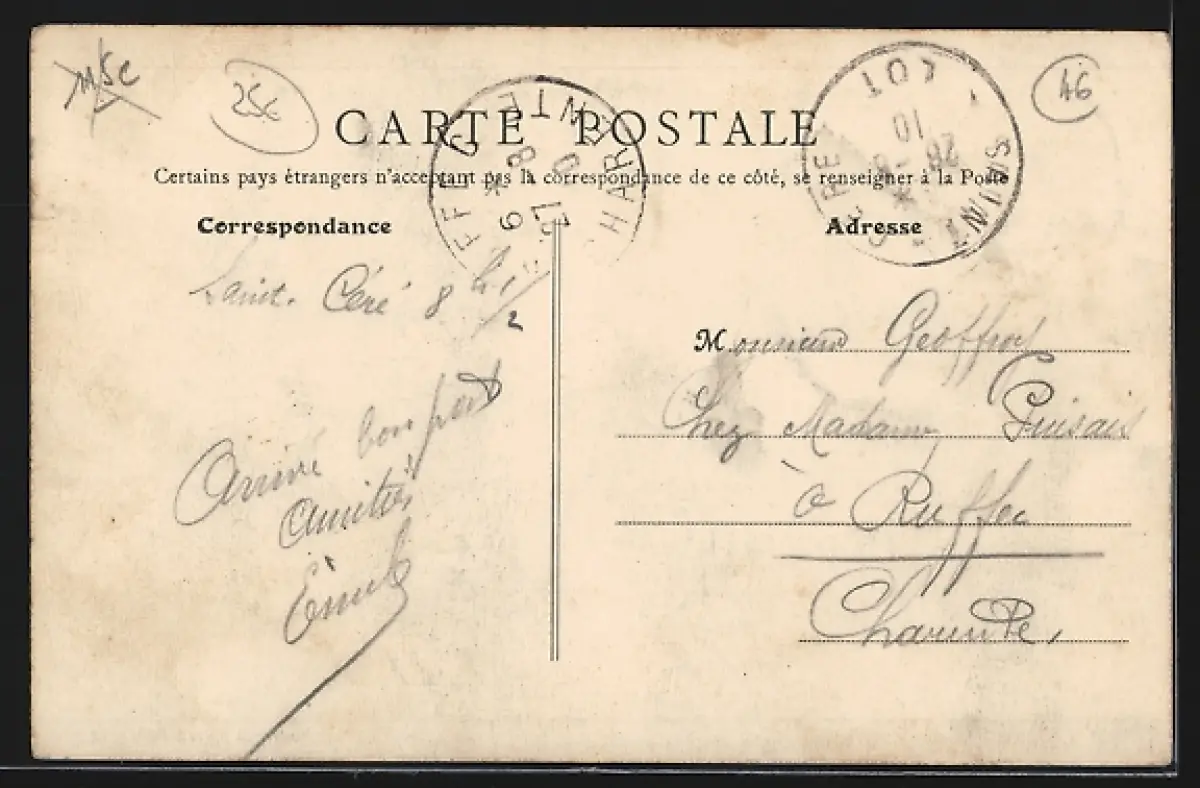 25c
46
CARTE POSTALE
Certains pays étrangers n'acceptant pas la correspondance de ce côté, se renseigner à la Poste
Correspondance
Adresse
RUFFEC CHARENTE
SAINT-CÉRÉ LOT
Saint. Céré 8 h 1/2
Arrivé bon port
amitiés
Emile
Monsieur Geoffroy
Chez Madame
à Ruffec
Charente,